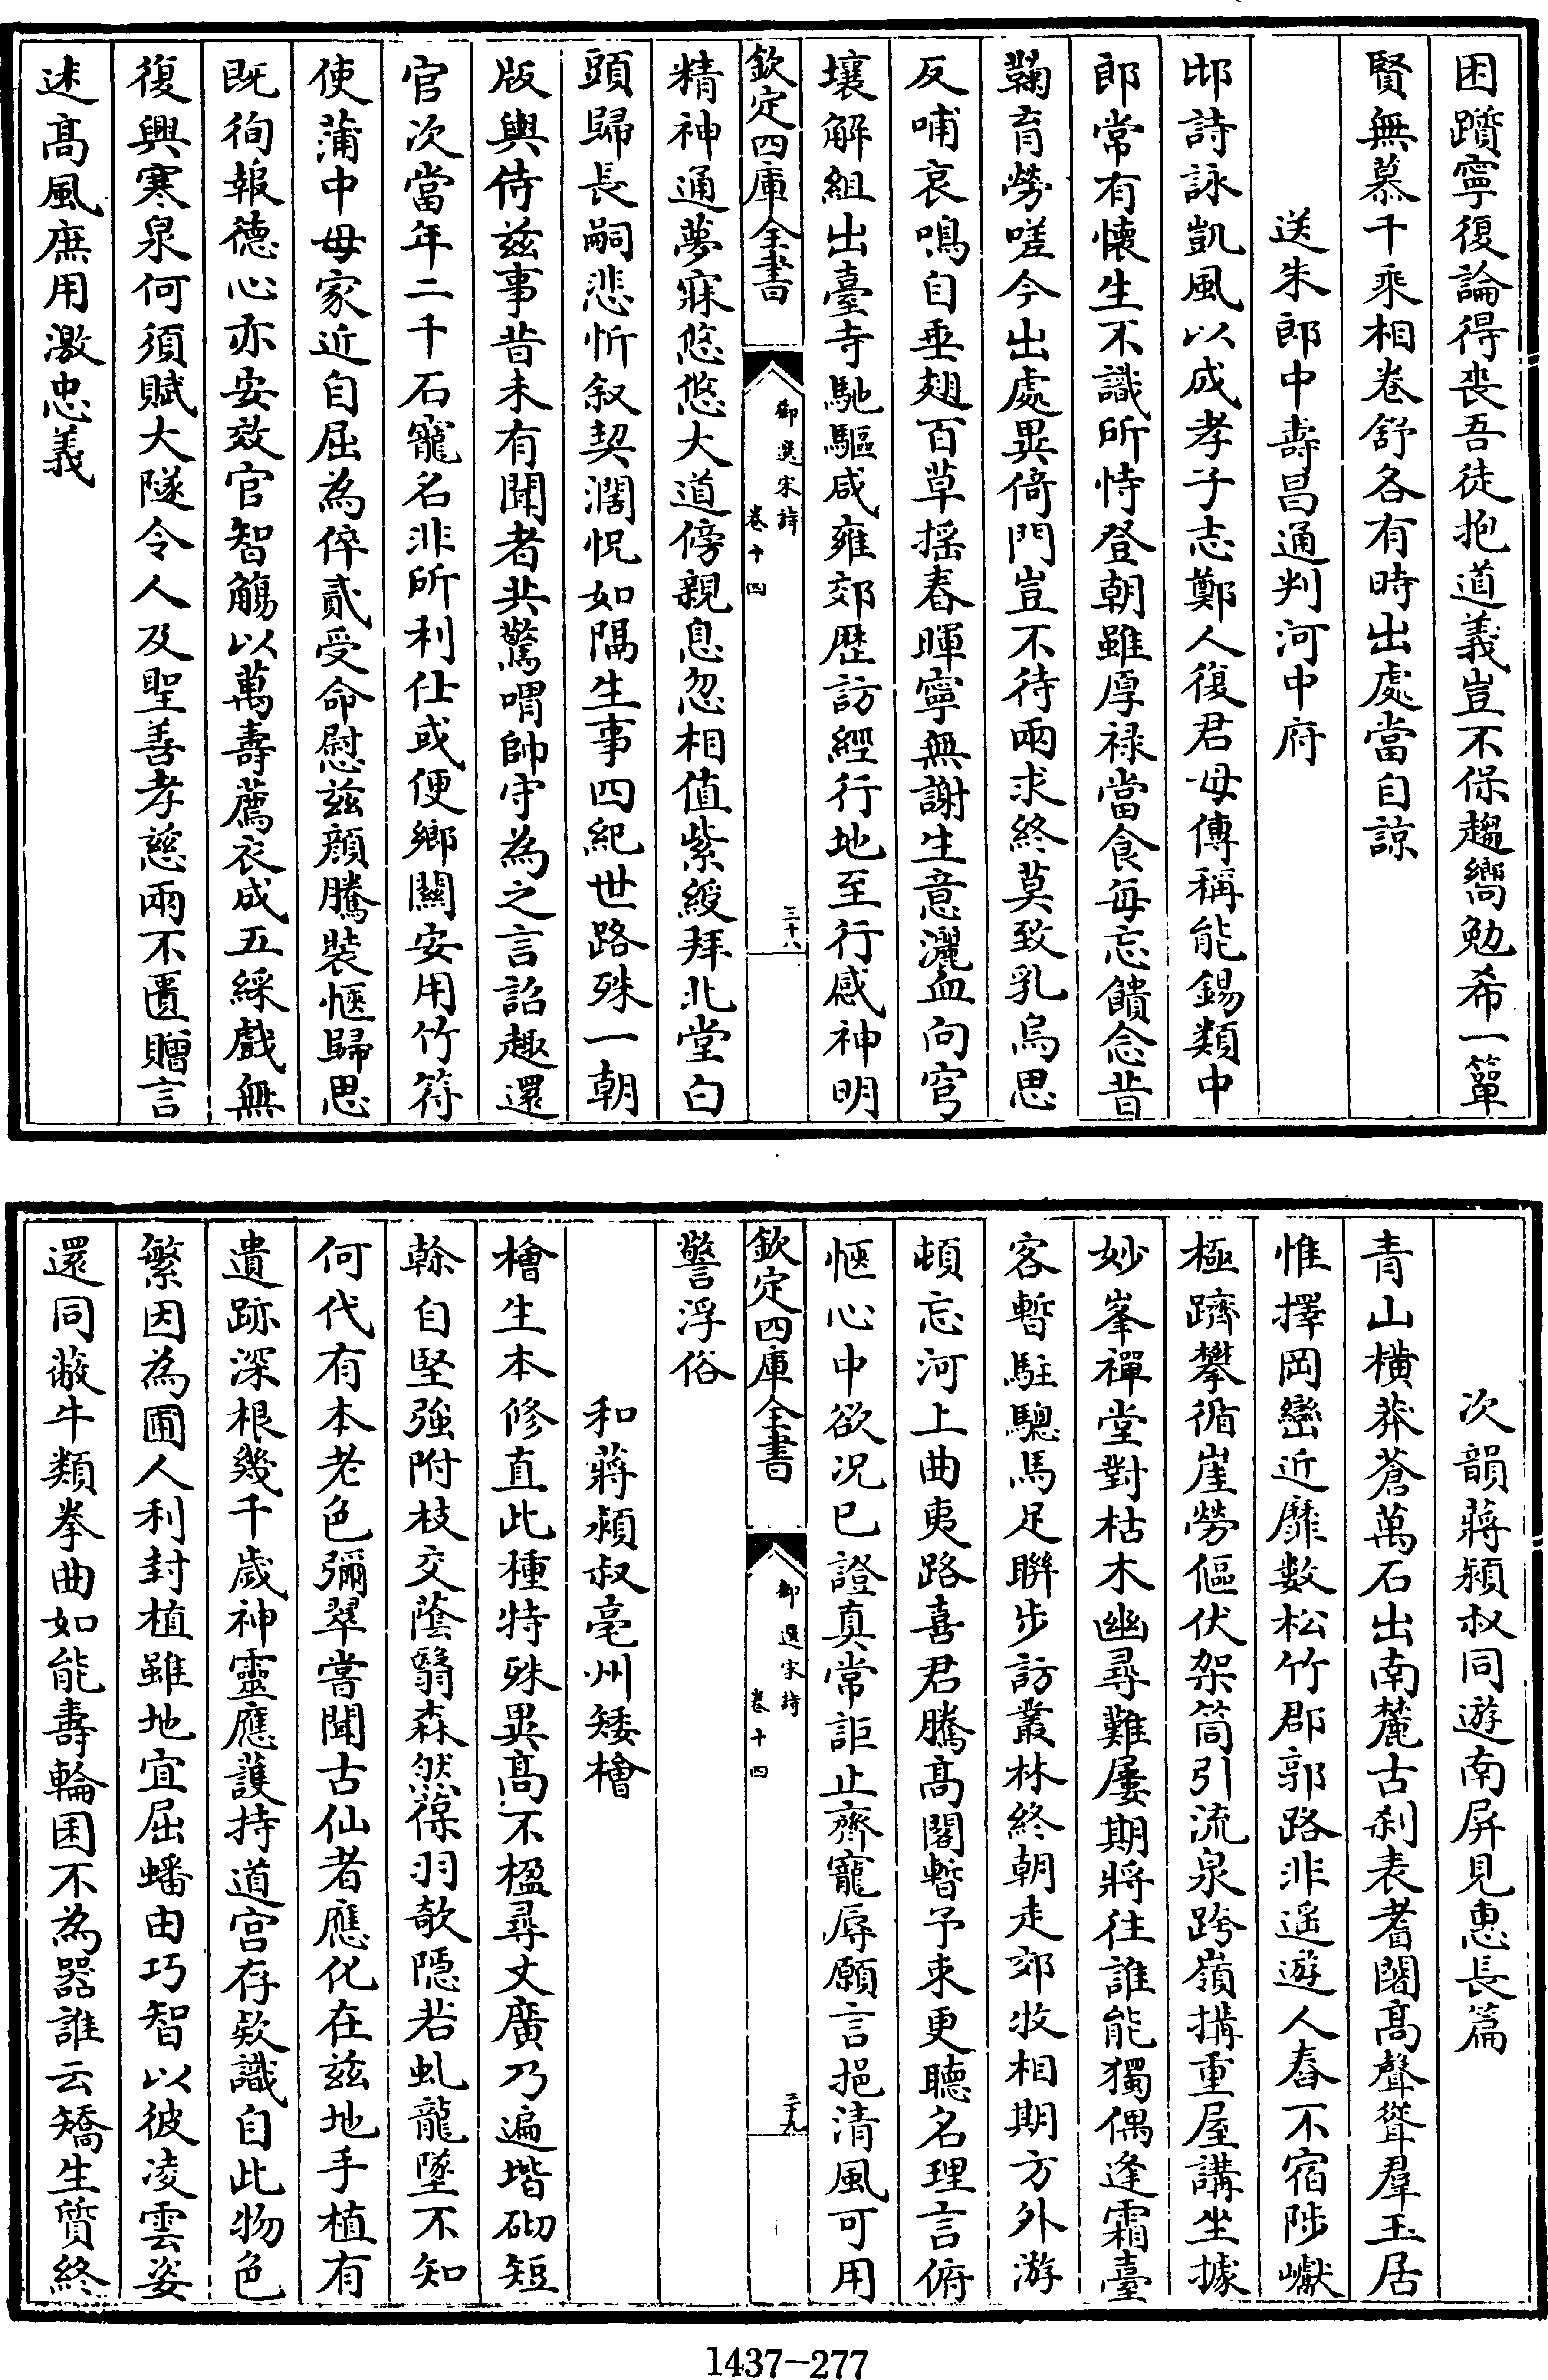 困躓寧復論得喪吾徒抱道義豈不保趨嚮勉希一簞
賢無慕千乘相卷舒各有時出處當自諒
送朱郎中壽昌通判河中府
邶詩詠凱風以成孝子志鄭人復君母傳稱能錫類中
郎常有懷生不識所恃登朝雖厚禄當食每忘饋念昔
鞠育勞嗟今出處異倚門豈不待兩求終莫致乳烏思
反哺哀鳴自垂翅百草揺春暉寧無謝生意灑血向穹
壤解組出臺寺馳驅咸雍郊歴訪經行地至行感神明
欽定四庫全書
御選宋詩
卷十四
三十八
精神通夢寐悠悠大道傍親息忽相值紫綬拜北堂白
頭歸長嗣悲忻叙契濶怳如隔生事四紀世路殊一朝
版輿侍兹事昔未有聞者共驚喟帥守為之言詔趣還
官次當年二千石寵名非所利仕或便鄉關安用竹符
使蒲中母家近自屈為倅貳受命慰兹顔騰裝愜歸思
既徇報德心亦安效官智觴以萬壽薦衣成五綵戲無
復興寒泉何須賦大隧令人及聖善孝慈兩不匱贈言
述髙風庶用激忠義
次韻蔣頴叔同遊南屏見惠長篇
青山横莽蒼萬石出南麓古刹表耆闍髙聲聳羣玉居
惟擇岡巒近靡數松竹郡郭路非遥遊人舂不宿陟巘
極躋攀循崖勞傴伏架筒引流泉跨嶺搆重屋講坐據
妙峯禪堂對枯木幽尋難屢期將往誰能獨偶逢霜臺
客暫駐驄馬足聨步訪叢林終朝走郊牧相期方外游
頓忘河上曲夷路喜君騰髙閣暫予束更聽名理言俯
愜心中欲况已證真常詎止齊寵辱願言挹清風可用
欽定四庫全書
御選宋詩
卷十四
三十九
警浮俗
和蔣頴叔亳州矮檜
檜生本修直此種特殊異髙不楹尋丈廣乃遍堦砌短
榦自堅強附枝交蔭翳森然葆羽欹隠若虬龍墜不知
何代有本老色彌翠嘗聞古仙者應化在兹地手植有
遺跡深根幾千歲神靈應護持道宫存欵識自此物色
繁因為圃人利封植雖地宜屈蟠由巧智以彼凌雲姿
還同蔽牛類拳曲如能壽輪囷不為器誰云矯生質終
1437-277